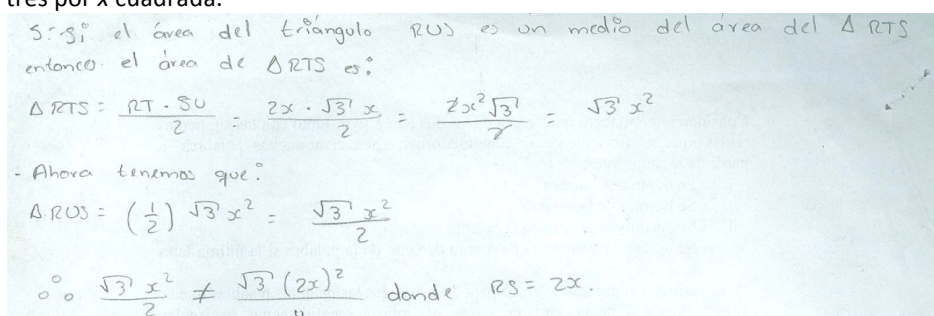 tres por x cuadrada.
5.- Si el área del triángulo RUS es un medio del área del Δ RTS
entonces el área de Δ RTS es:
Δ RTS = RT · SU / 2 = 2x · √3 x / 2 = 2x²√3 / 2 = √3 x²
- Ahora tenemos que:
Δ RUS = (1/2) √3 x² = √3 x² / 2
∴ √3 x² / 2 ≠ √3 (2x)² / 4 donde RS = 2x.